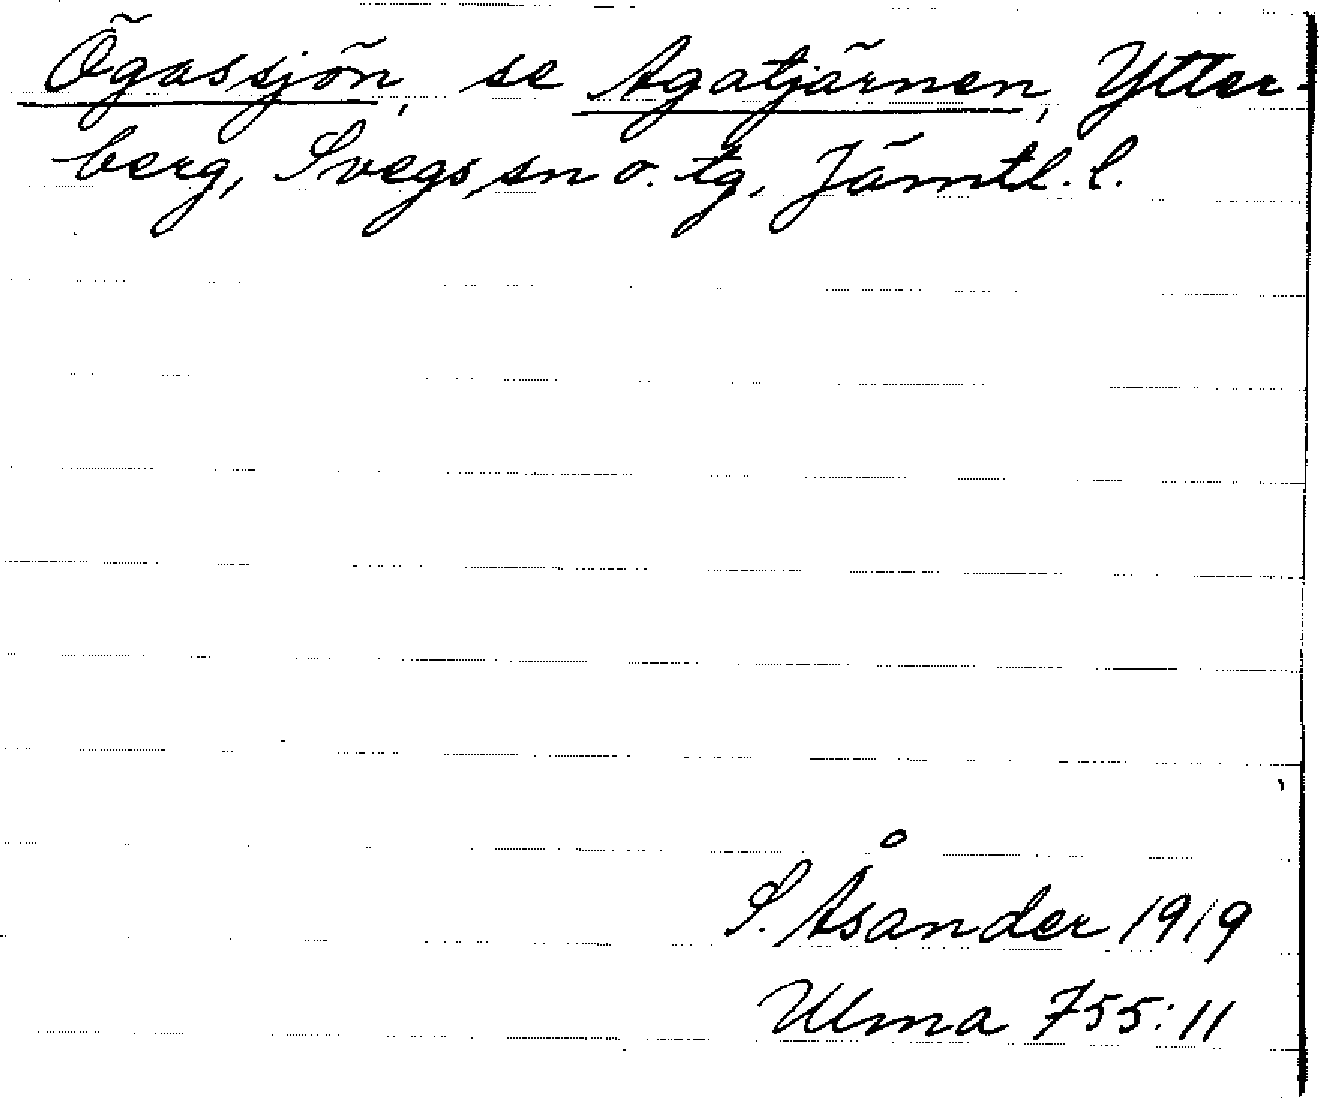 Ögassjön, se Agatjärnen, Ytter-
berg, Svegs sn o. tg, Jämtl. l.
S. Åsander 1919
Ulma 755:11